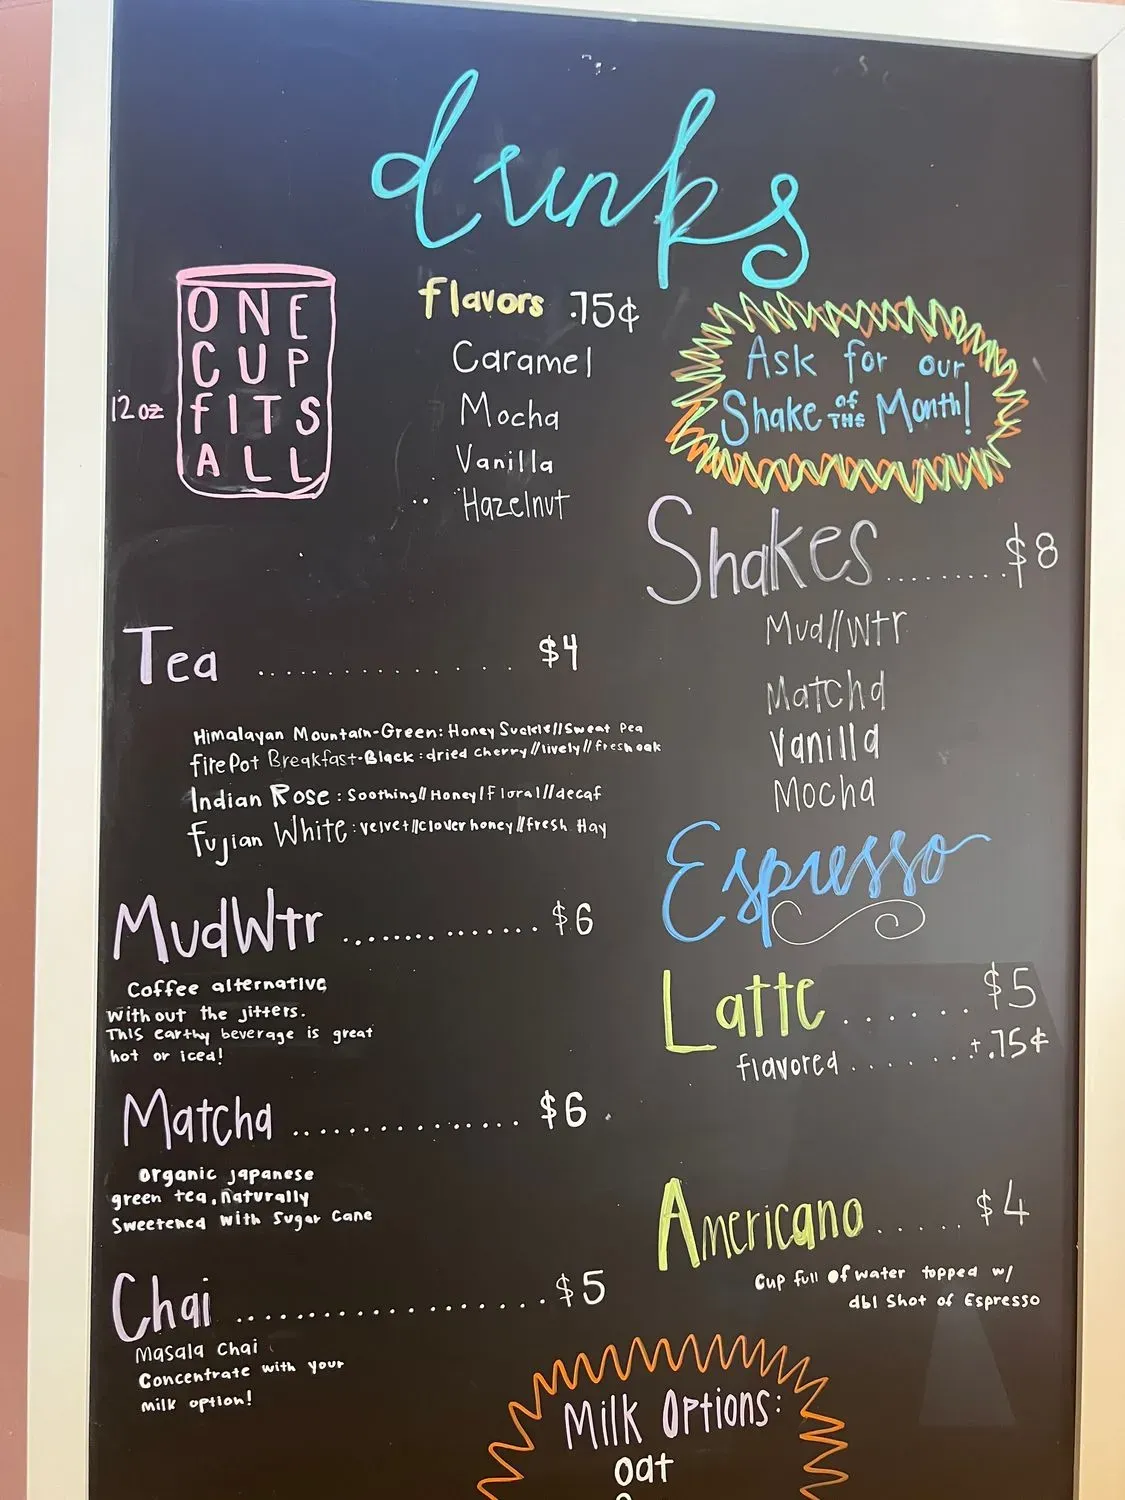 drinks
ONE
CUP
fITS
ALL
12oz
flavors .75¢
Caramel
Mocha
Vanilla
Hazelnut
Ask for our
Shake OF THE Month!
Shakes.........$8
Mud//Wtr
Matcha
Vanilla
Mocha
Tea .............. $4
Himalayan Mountain-Green: Honey Suckle//Sweat Pea
firePot Breakfast-Black: dried cherry//lively//fresh oak
Indian Rose: Soothing//Honey/Floral//decaf
Fujian White: velvet//clover honey//fresh Hay
MudWtr ............... $6
Coffee alternative
without the jitters.
This earthy beverage is great
hot or iced!
Matcha ............... $6
organic japanese
green tea, naturally
Sweetened with Sugar Cane
Chai ................... $5
Masala Chai
Concentrate with your
milk option!
Espresso
Latte ...... $5
flavored ...... +.75¢
Americano ..... $4
Cup full of water topped w/
dbl Shot of Espresso
Milk Options:
oat